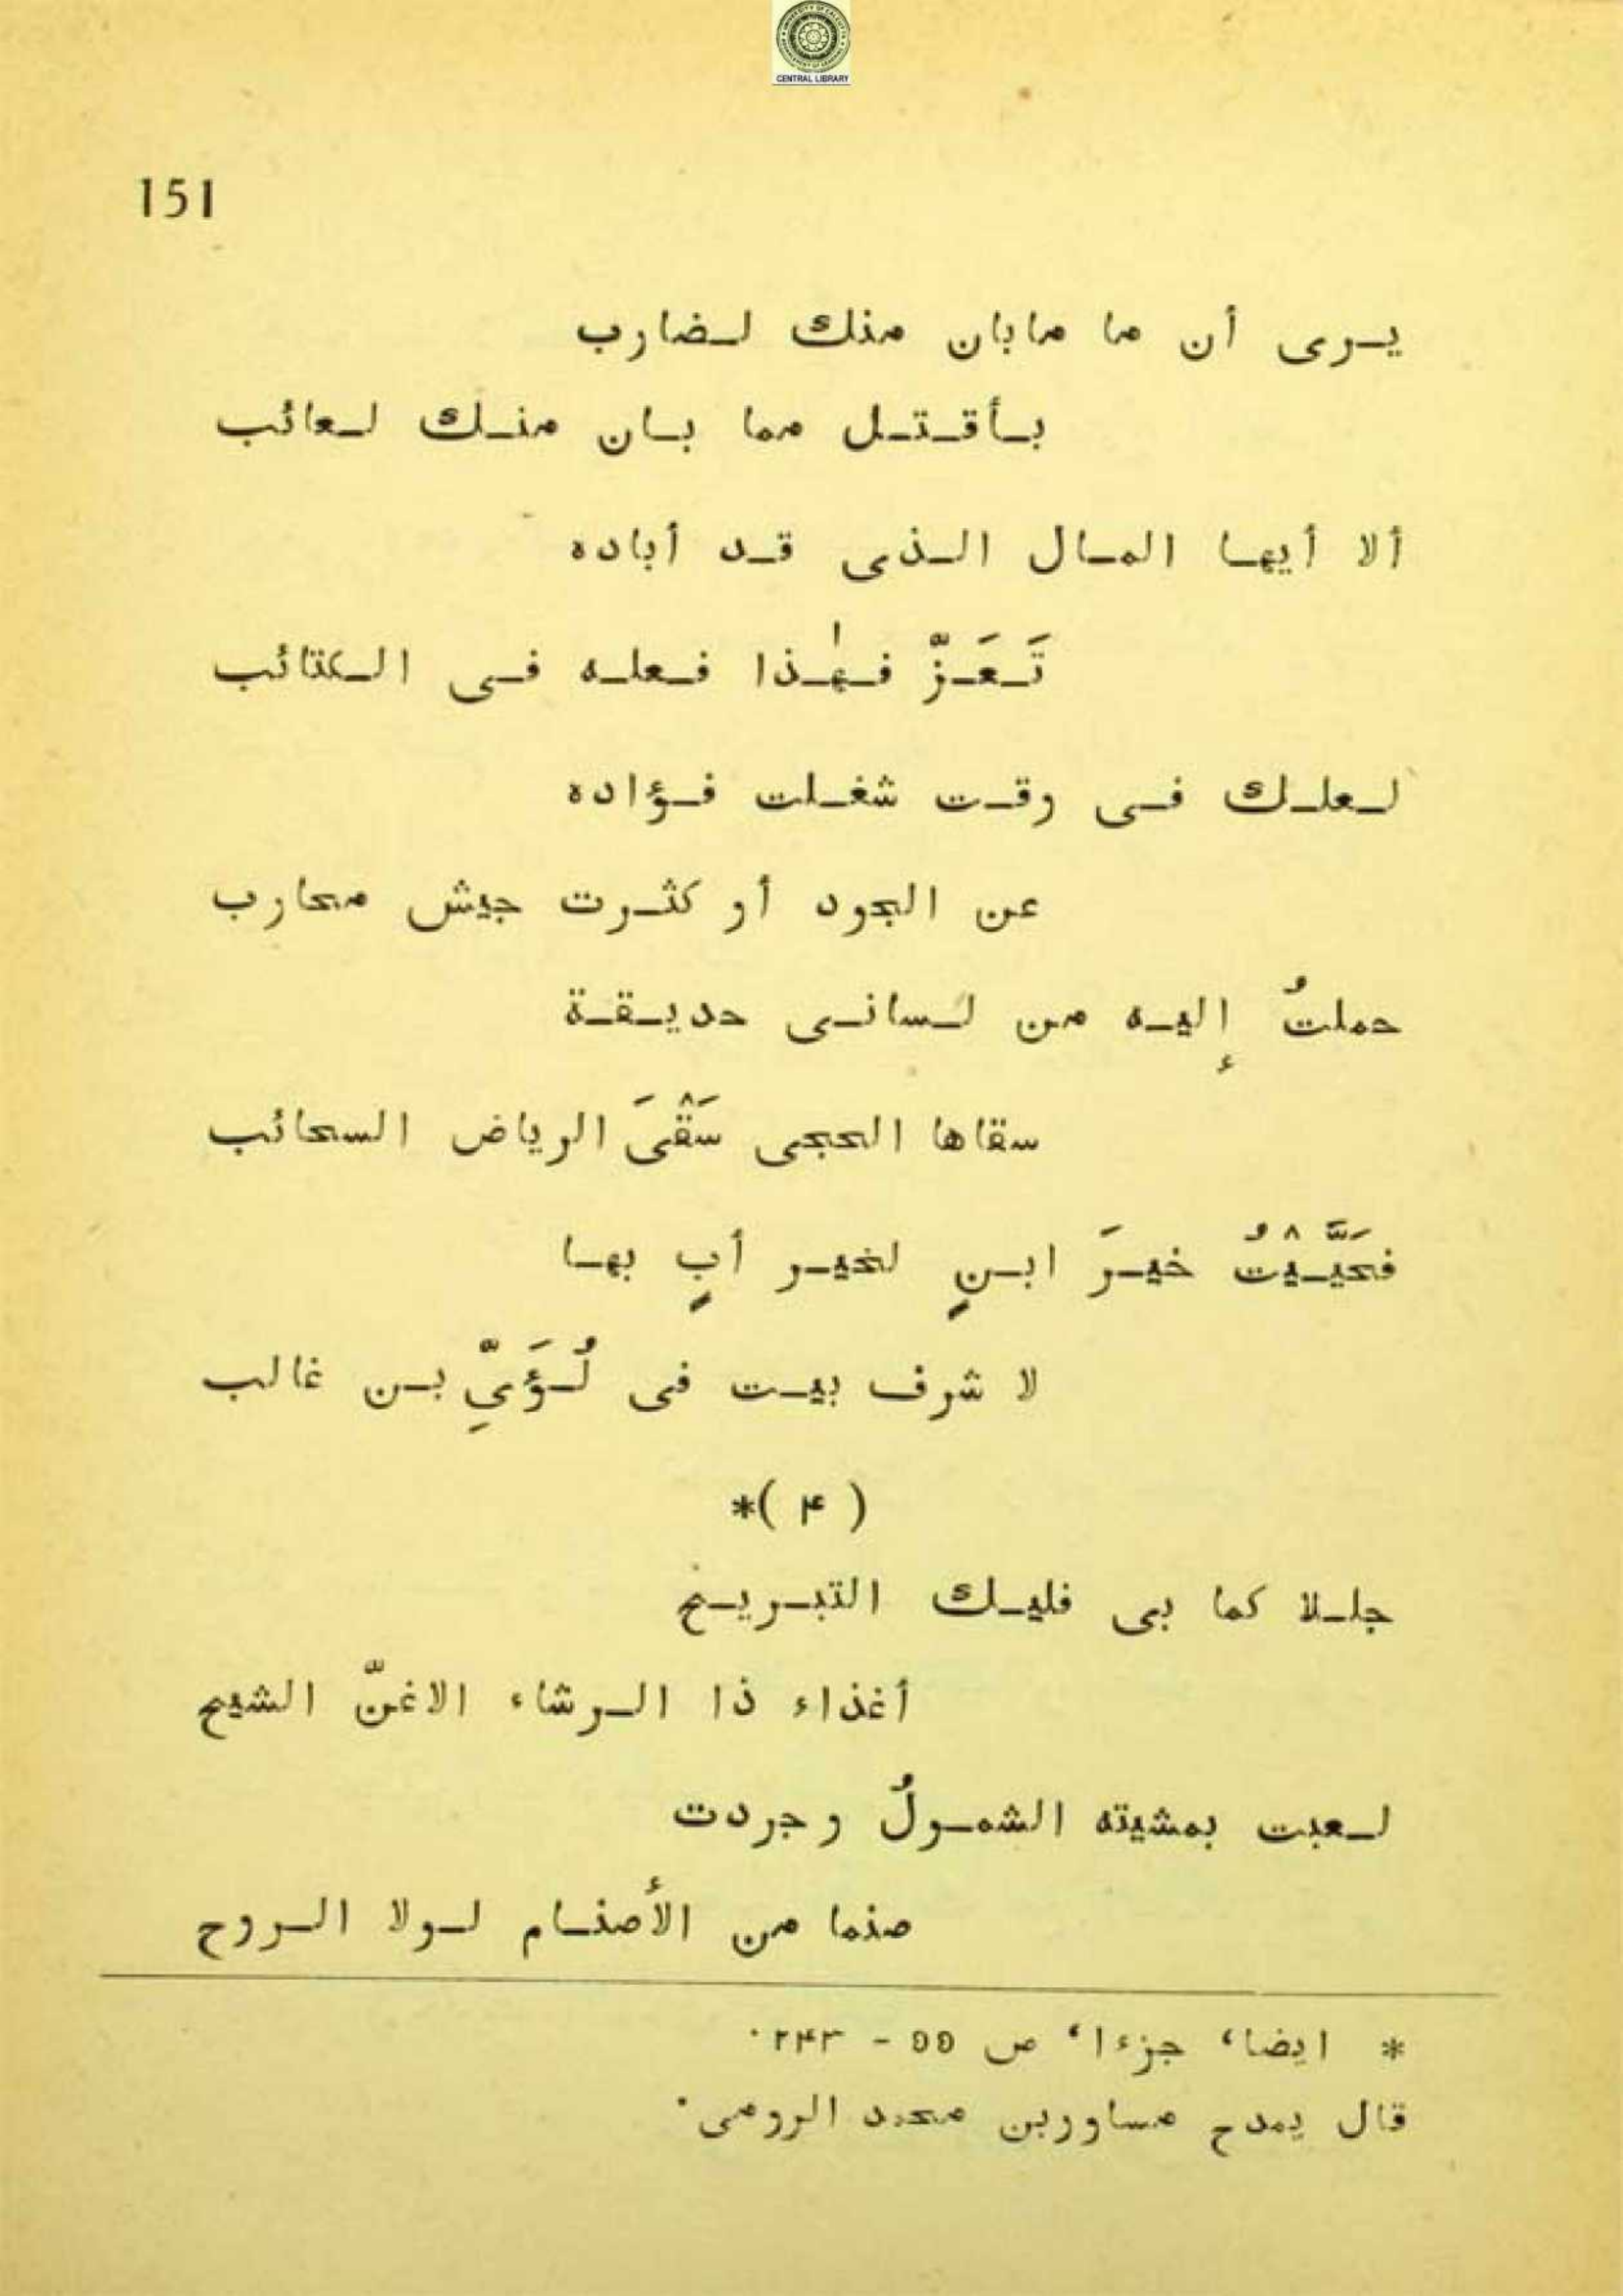 CENTRAL LIBRARY
151
يرى أن ما مابان منك لضارب
بأقتل مما بان منك لعائب
ألا أيها المال الذى قد أباده
تَعَزّ فهٰذا فعله فى الكتائب
لعلك فى وقت شغلت فؤاده
عن الجود أو كثرت جيش محارب
حملتُ إليه من لسانى حديقة
سقاها الحجى سَقْىَ الرياض السحائب
فحَيَّيْتُ خيرَ ابنٍ لخير أبٍ بها
لا شرف بيت فى لُؤَىِّ بن غالب
( ۴ )*
جللا كما بى فليك التبريح
أغذاء ذا الرشاء الاغنّ الشيح
لعبت بمشيته الشمولُ وجردت
صنما من الأصنام لولا الروح
* ايضا، جزء ا، ص ۵۵ - ۲۴۳٠
قال يمدح مساوربن محمد الرومى٠